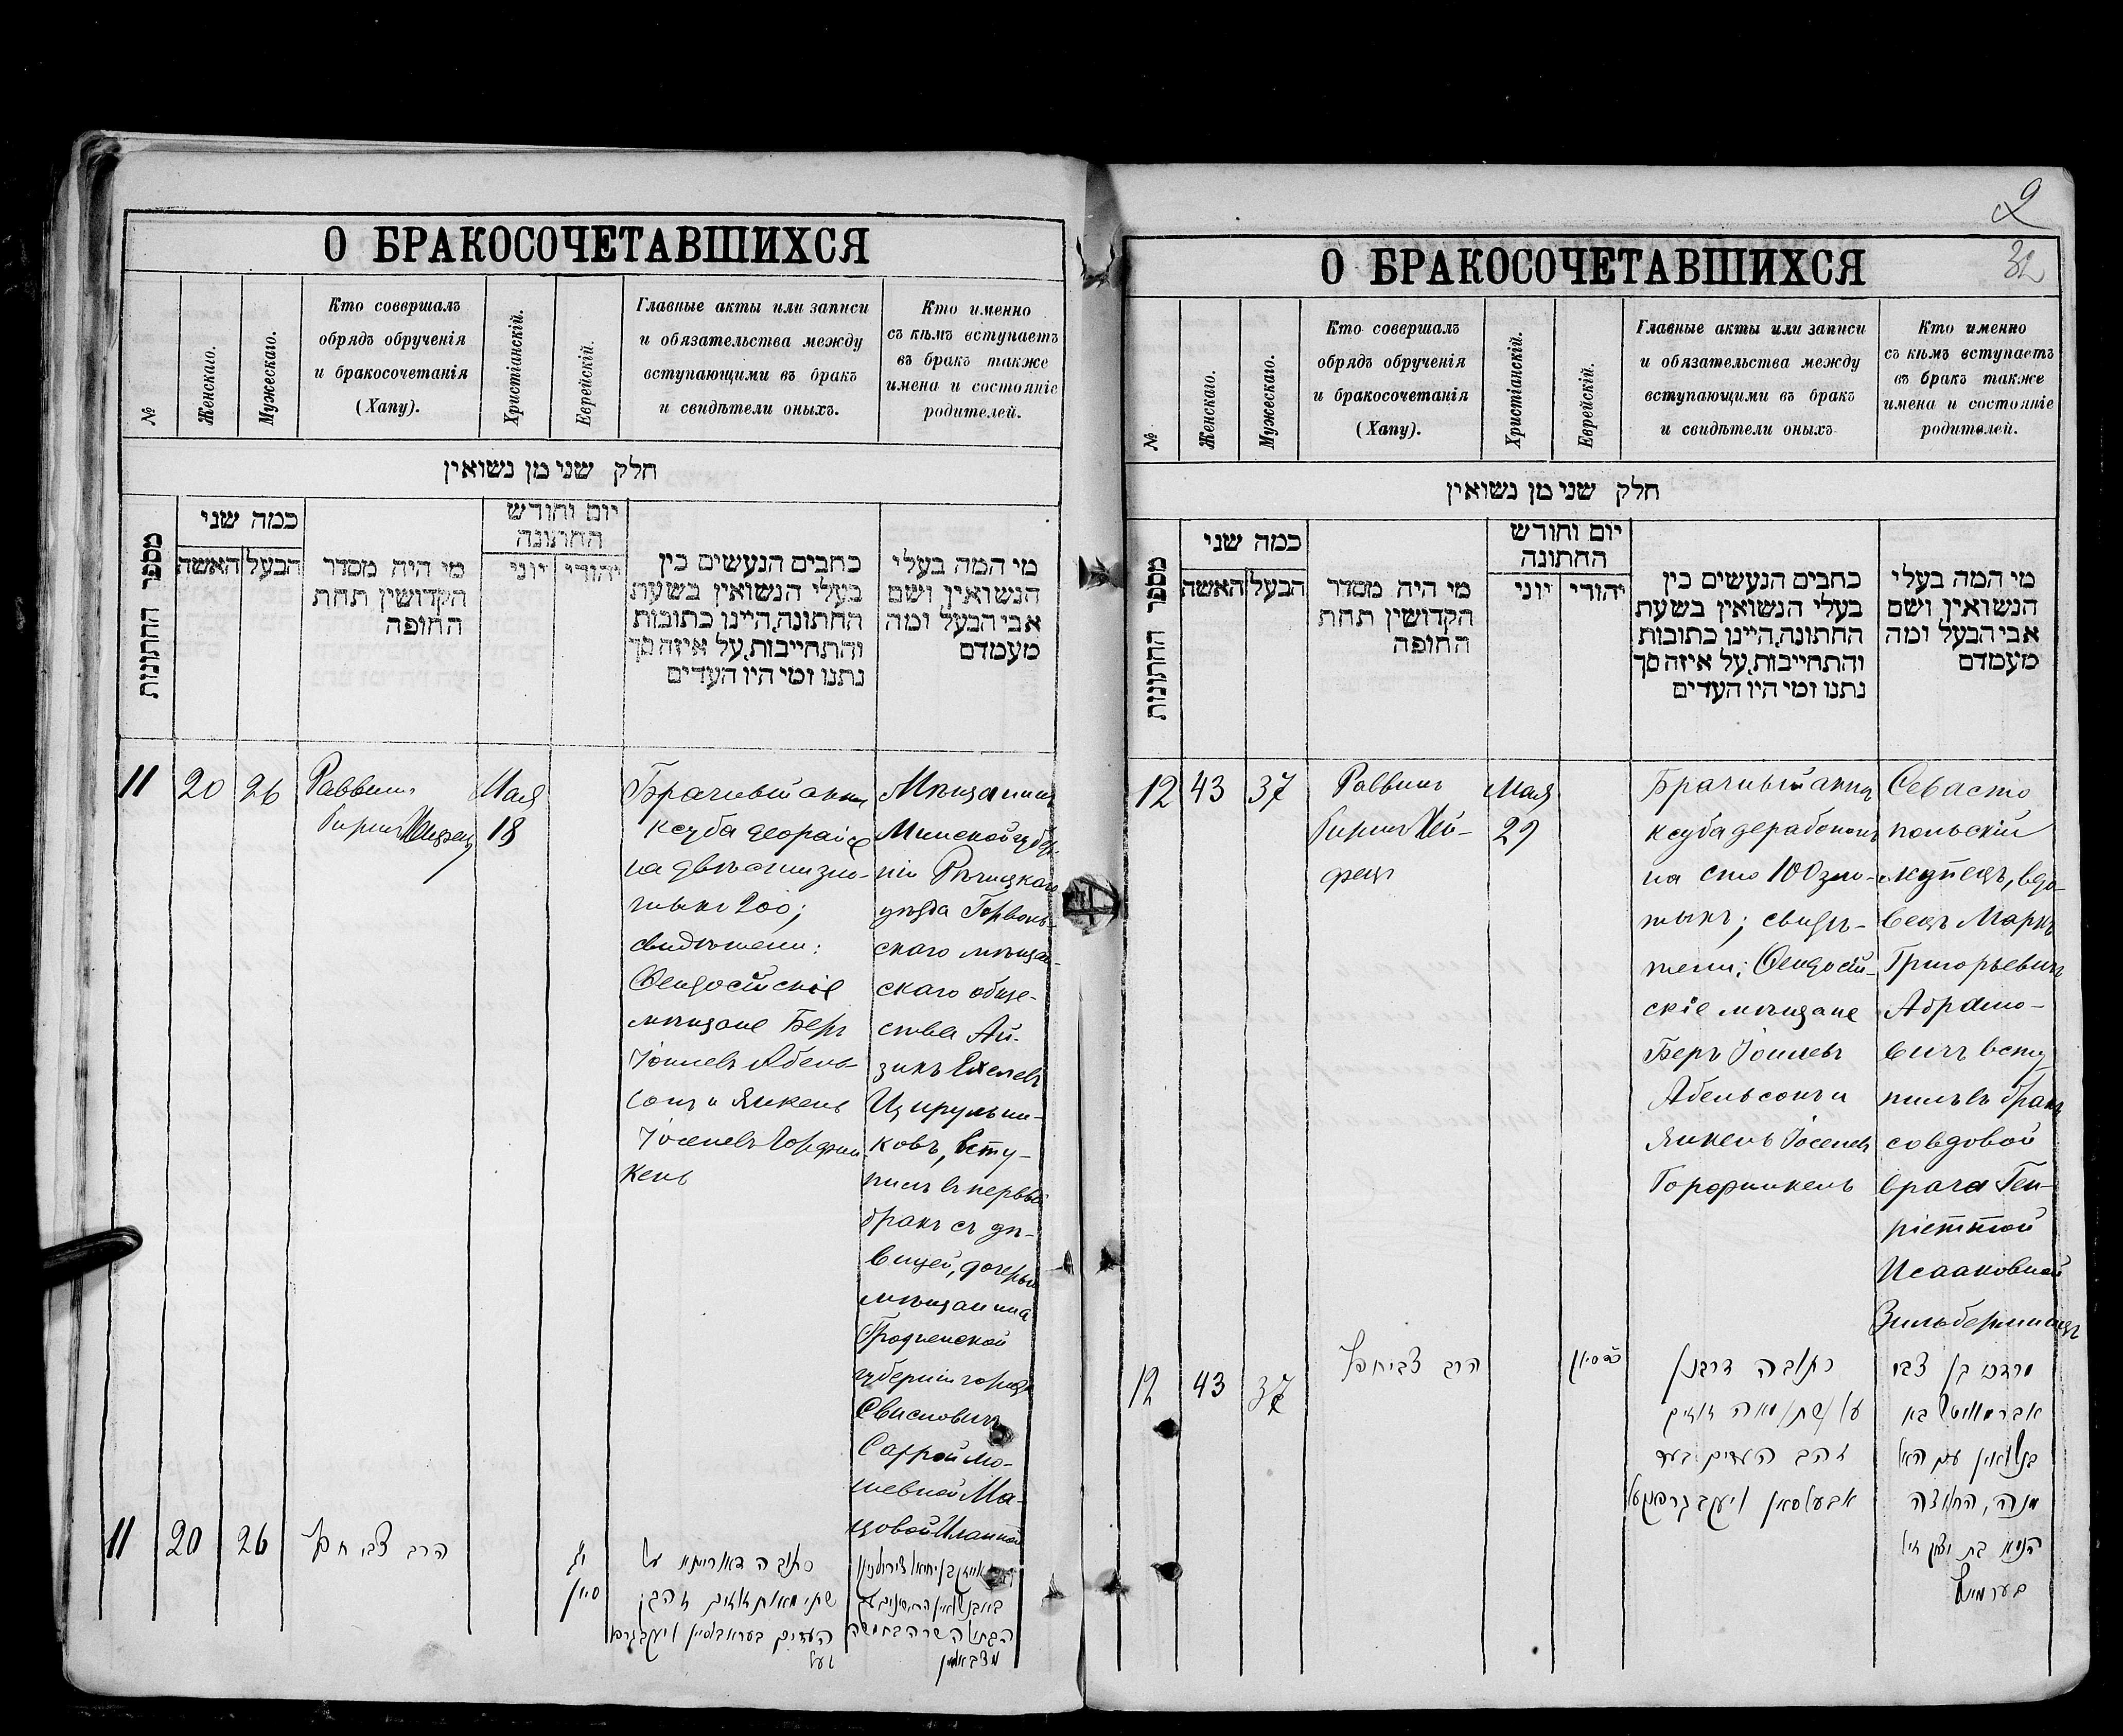 О БРАКОСОЧЕТАВШИХСЯ
№
Женскаго.
Мужескаго.
Кто совершалъ
обрядъ обрученія
и бракосочетанія
(Хапу).
Христіанскій.
Еврейскій.
Главные акты или записи
и обязательства между
вступающими въ бракъ
и свидѣтели оныхъ.
Кто именно
съ кѣмъ вступаетъ
въ бракъ также
имена и состояніе
родителей.
חלק שני מן נשואין
מספר החתונות
כמה שני
האשה
הבעל
מי היה מסדר
הקדושין תחת
החופה
יום וחודש
החתונה
יוני
יהודי
כתבים הנעשים בין
בעלי הנשואין בשעת
החתונה, היינו כתובות
והתחייבות, על איזה סך
נתנו ומי היו העדים
מי המה בעלי
הנשואין ושם
אבי הבעל ומה
מעמדם
11
20
26
Раввинъ
Мая
18
Брачный актъ
ксуба деорайсе
на двѣсти зло-
тыхъ 200;
свидѣтели:
Ѳеодосійскіе
мѣщане Беръ
Іоселевъ Абель-
сонъ и Янкель
Іоселевъ Горфин
кель
Мѣщанинъ
Минской губер-
ніи Рѣчицкаго
уѣзда Горволь-
скаго мѣщан-
скаго обще-
ства Ай-
зикъ Ехелевъ
Цирульни-
ковъ, всту-
пилъ въ первый
бракъ съ дѣ-
вицей, дочерью
мѣщанина
Гродненской
губерніи города
Свислович
Саррой Мо-
шевной Ма-
цовой
11
20
26
הרב צבי חפץ
יג
סיון
כתובה דאורייתא על
שתי מאות זהובים זהב
העדים
הבתולה שרה בת משה
2
32
О БРАКОСОЧЕТАВШИХСЯ
№
Женскаго.
Мужескаго.
Кто совершалъ
обрядъ обрученія
и бракосочетанія
(Хапу).
Христіанскій.
Еврейскій.
Главные акты или записи
и обязательства между
вступающими въ бракъ
и свидѣтели оныхъ
Кто именно
съ кѣмъ вступаетъ
въ бракъ также
имена и состояніе
родителей.
חלק שני מן נשואין
מספר החתונות
כמה שני
האשה
הבעל
מי היה מסדר
הקדושין תחת
החופה
יום וחודש
החתונה
יוני
יהודי
כתבים הנעשים בין
בעלי הנשואין בשעת
החתונה, היינו כתובות
והתחייבות, על איזה סך
נתנו ומי היו העדים
מי המה בעלי
הנשואין ושם
אבי הבעל ומה
מעמדם
12
43
37
Раввинъ
Гиршъ Хей-
фецъ
Мая
29
Брачный актъ
ксуба дерабононъ
на сто 100 зло-
тыхъ; свидѣ-
тели: Ѳеодосій-
скіе мѣщане
Беръ Іоселевъ
Абельсонъ и
Янкель Іоселевъ
Горфинкель
Севасто
польскій
купецъ, вдо-
вецъ Маркъ
Григорьевичъ
Абрамо-
вичъ всту
пилъ въ бракъ
со вдовой
врача Ген-
ріеттой
Исааковной
Зильберминцъ
12
43
37
הרב צבי חפץ
סיון
כתובה דרבנן
מאה זהובים
זהב העדים בער
אבעלסאן ויעקב גרפינקעל
מרדכי בן צבי
אבראמאוויץ בא
בנשואין עם האל
מנה, החלוצה
בת יצחק זיל
בערמינץ